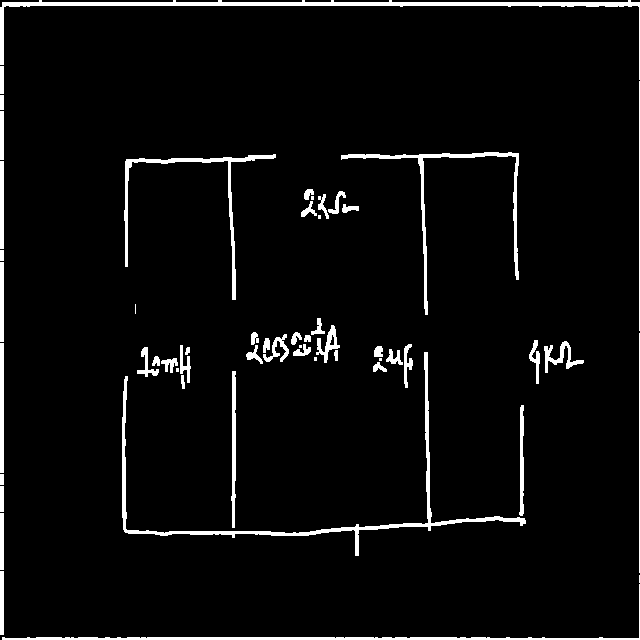 2KΩ
10mH
2cos20tA
2uf
4KΩ